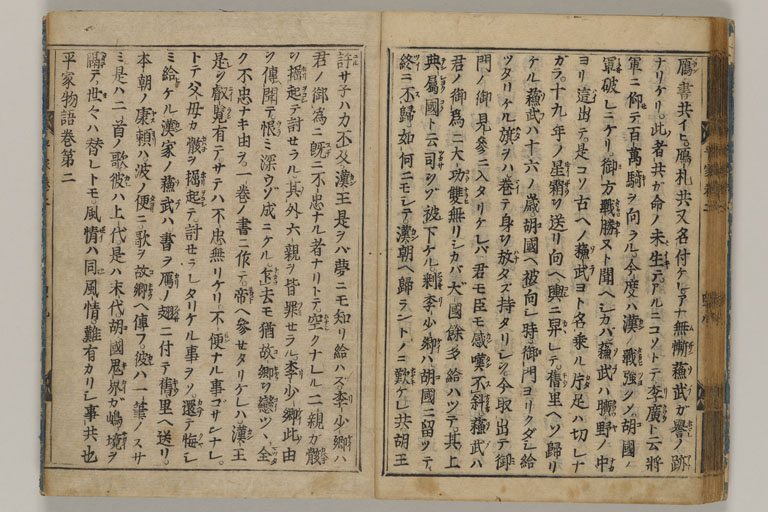 鴈書共イヒ。鴈札共又名付ケリ。アナ無慚蘇武ガ譽ノ跡
ナリケリ。此者共ガ命ノ未生テアルニコソトテ。李廣ト云將
軍ニ仰テ百萬騎ヲ向ラル。今度ハ漢ノ戰強クノ胡國ノ
軍破レニケリ。御方戰勝ヌト聞ヘシカバ蘇武ハ曠野ノ中
ヨリ這出テ。是コソ古ヘノ蘇武ヨト名乘ル。片足ハ切レナ
ガラ。十九年ノ星霜ヲ送リ向ヘ輿ニ舁レテ。舊里ヘソ歸リ
ケル。蘇武ハ十六ノ歳胡國ヘ被向シ時。御門ヨリクダシ給
ツタリケル旗ヲハ卷テ身ヲ放タズ持タリシヲ。今取出テ御
門ノ御見參ニ入タリケレバ。君モ臣モ感嘆不斜。蘇武ハ
君ノ御爲ニ大功雙無リシカバ。大國餘多給ハツテ。其上
典屬國ト云司ヲゾ被下ケル。剰李少卿ハ胡國ニ留ツテ。
終ニ不歸。如何ニモシテ漢朝ヘ歸ラントノミ歎ケレ共。胡王
許サ子ハカ不及。漢王是ヲハ夢ニモ知リ給ハズ。李少卿ハ
君ノ御爲ニ既ニ不忠ナル者ナリトテ。空クナレル二親ガ骸
ヲ掘起テ討セラル。其外六親ヲ皆罪セラル。李少卿此由
ヲ傳聞テ恨ミ深ウゾ成ニケル。乍去モ猶故郷ヲ戀ツヽ。全
ク不忠ナキ由ヲ。一卷ノ書ニ作テ。帝ヘ參セタリケレハ。漢王
是ヲ叡覧有テサテハ不忠無リケリ。不便ナル事ゴサンナレ。
トテ父母カ骸ヲ掘起テ。討セラレタリケル事ヲソ。還テ悔シ
ミ給ケル。漢家ノ蘇武ハ書ヲ鴈ノ翅ニ付テ舊里ヘ送リ。
本朝ノ康頼ハ波ノ便ニ歌ヲ故郷ヘ傳フ。彼ハ一筆ノスサ
ミ。是ハ二首ノ歌。彼ハ上代是ハ末代。胡國鬼界ガ嶋境ヲ
隔テ。世々ハ替レトモ。風情ハ同風情。難有カリシ事共也
平家物語卷第二